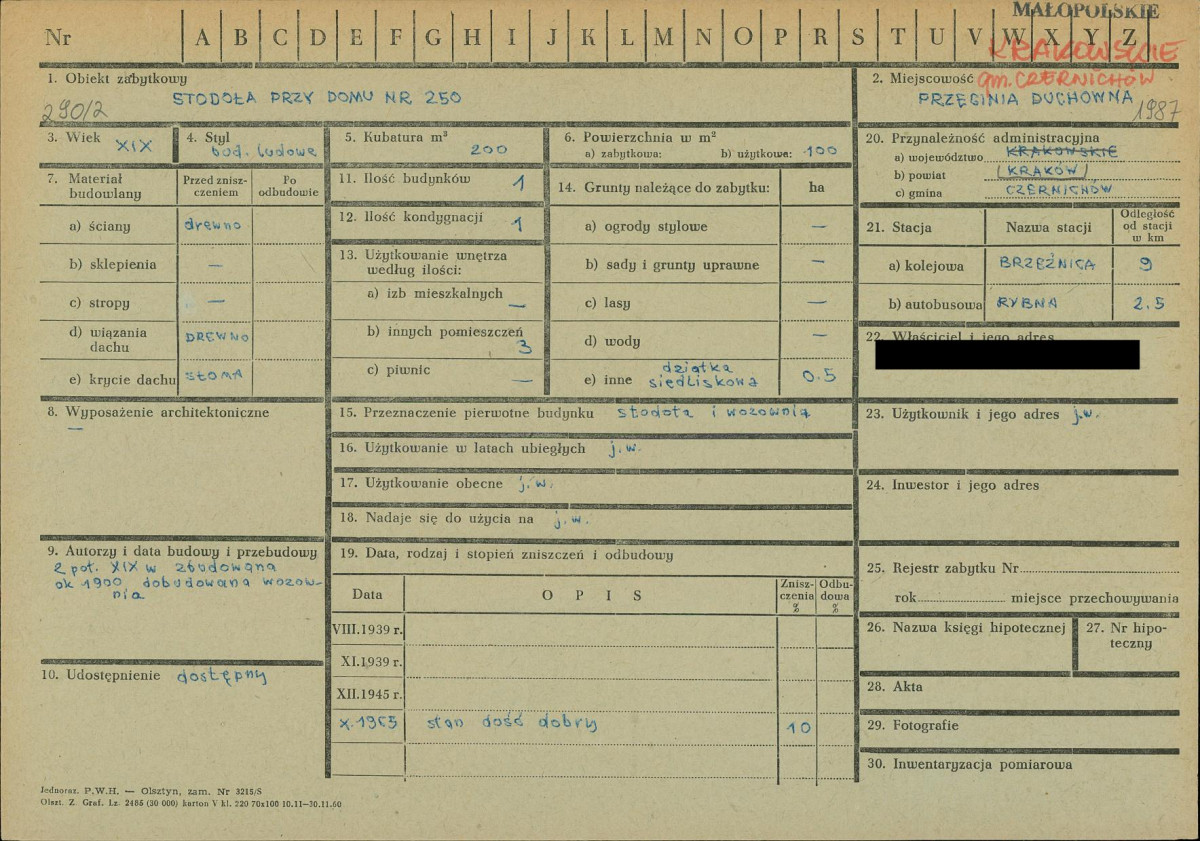 MAŁOPOLSKIE
Nr A B C D E F G H I J K L M N O P R S T U V W X Y Z
KRAKOWSKIE
gm. CZERNICHÓW
1. Obiekt zabytkowy
STODOŁA PRZY DOMU NR 250
290/2
2. Miejscowość
PRZEGINIA DUCHOWNA
1987
3. Wiek XIX
4. Styl
bud. ludowe
5. Kubatura m³
200
6. Powierzchnia w m²
a) zabytkowa: b) użytkowa: 100
7. Materiał budowlany
Przed zniszczeniem
Po odbudowie
a) ściany drewno
b) sklepienia —
c) stropy —
d) wiązania dachu DREWNO
e) krycie dachu SŁOMA
8. Wyposażenie architektoniczne
—
9. Autorzy i data budowy i przebudowy
2 poł. XIX w zbudowana
ok 1900 dobudowana wozow-
nia
10. Udostępnienie dostępny
11. Ilość budynków 1
12. Ilość kondygnacji 1
13. Użytkowanie wnętrza
według ilości:
a) izb mieszkalnych —
b) innych pomieszczeń 3
c) piwnic —
14. Grunty należące do zabytku: ha
a) ogrody stylowe —
b) sady i grunty uprawne —
c) lasy —
d) wody —
e) inne działka siedliskowa 0.5
15. Przeznaczenie pierwotne budynku stodoła i wozownia
16. Użytkowanie w latach ubiegłych j.w.
17. Użytkowanie obecne j.w.
18. Nadaje się do użycia na j.w.
19. Data, rodzaj i stopień zniszczeń i odbudowy
Data OPIS Zniszczenia % Odbudowa %
VIII.1939 r.
XI.1939 r.
XII.1945 r.
X.1965 stan dość dobry 10
20. Przynależność administracyjna
a) województwo KRAKOWSKIE
b) powiat (KRAKÓW)
c) gmina CZERNICHÓW
21. Stacja Nazwa stacji Odległość od stacji w km
a) kolejowa BRZEŹNICA 9
b) autobusowa RYBNA 2.5
22. Właściciel i jego adres
23. Użytkownik i jego adres j.w.
24. Inwestor i jego adres
25. Rejestr zabytku Nr
rok miejsce przechowywania
26. Nazwa księgi hipotecznej
27. Nr hipoteczny
28. Akta
29. Fotografie
30. Inwentaryzacja pomiarowa
Jednoraz. P.W.H. — Olsztyn, zam. Nr 3215/S
Olszt. Z. Graf. Lz. 2485 (30 000) karton V kl. 220 70x100 10.11-30.11.60